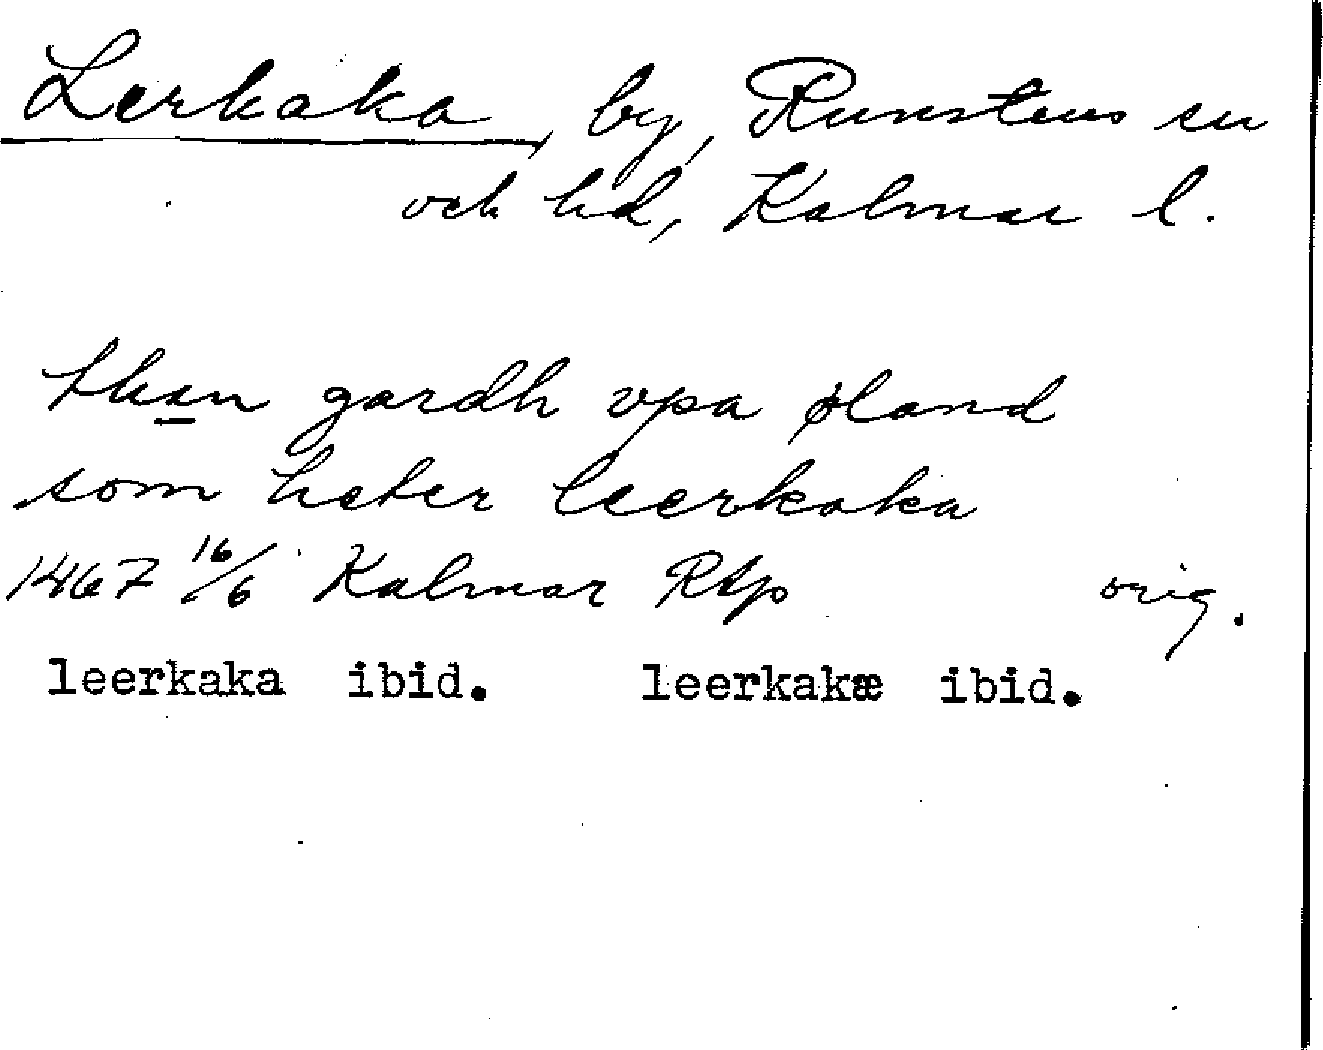 Lerkaka, by, Runstens sn
och hd, Kalmar l.
then gardh vpa øland
som heter leerkaka
1467 16/6 Kalmar RAp orig.
leerkaka ibid. leerkakæ ibid.